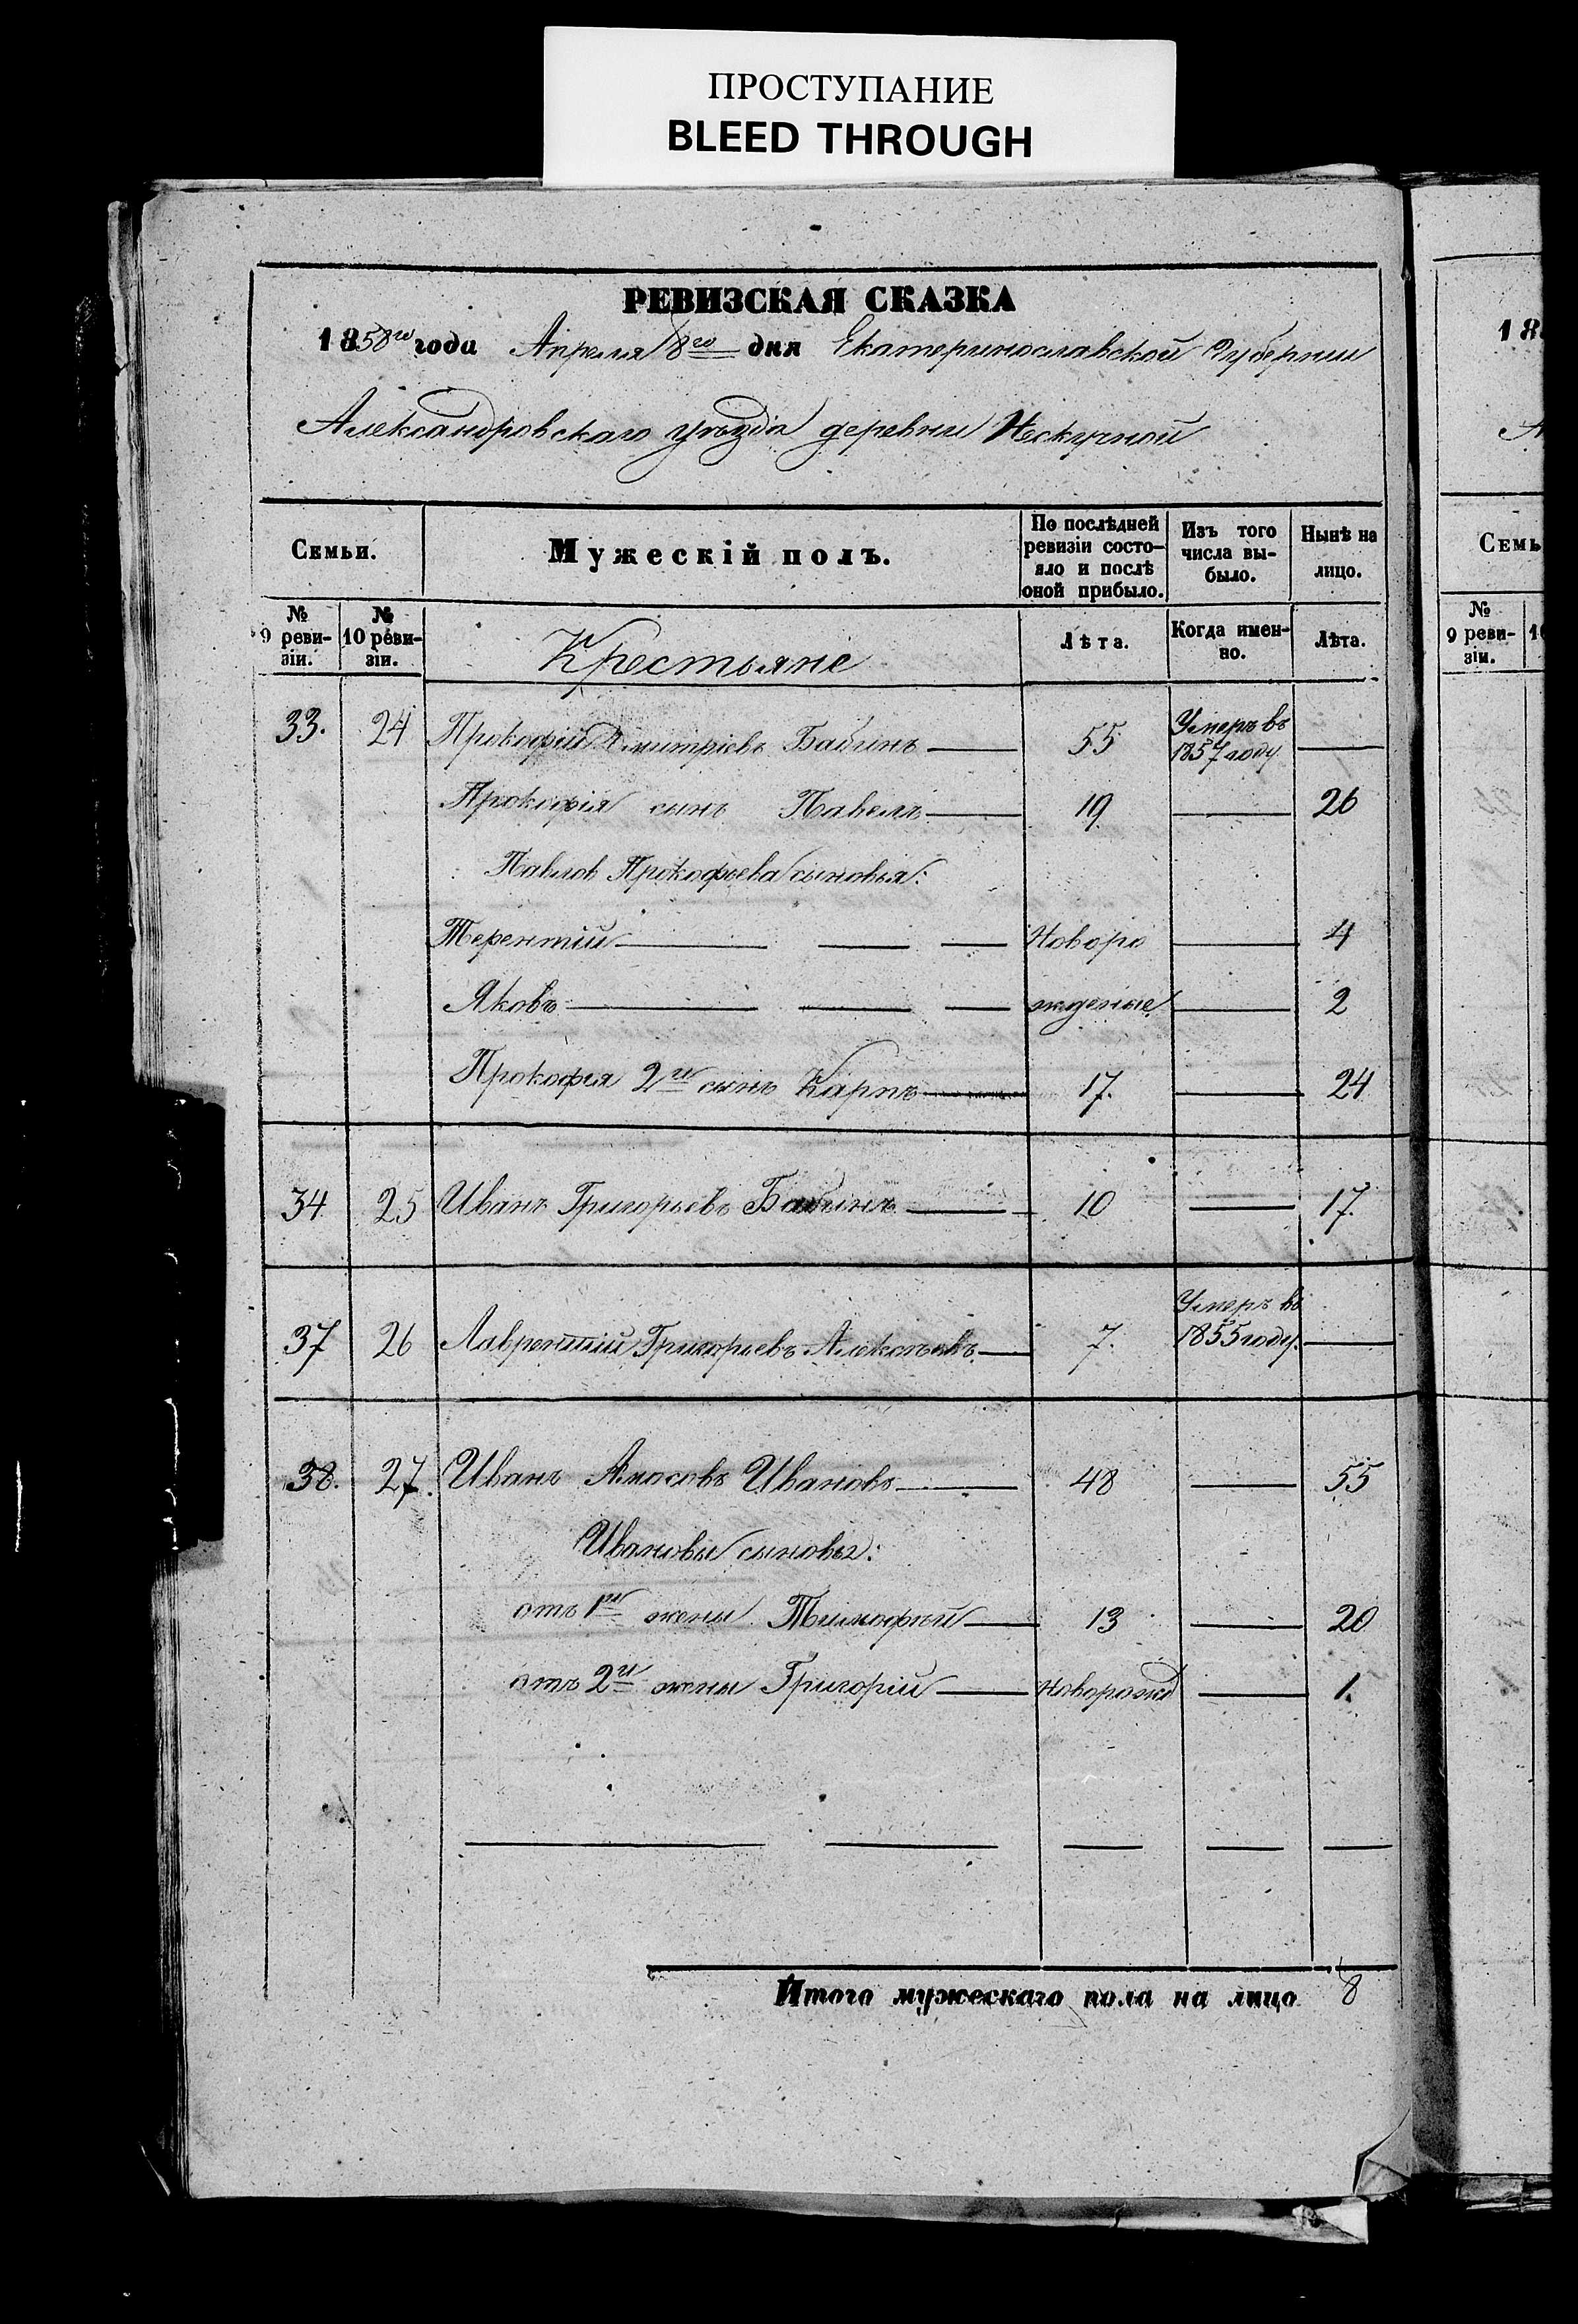 ПРОСТУПАНИЕ
BLEED THROUGH
РЕВИЗСКАЯ СКАЗКА
1858го года Апреля 8го дня Екатеринославской Губернии
Александровскаго уѣзда деревни Нескучной
Семьи.
Мужескій полъ.
По послѣдней ревизіи состо-
яло и послѣ
оной прибыло.
Изъ того
числа вы-
было.
Нынѣ на
лицо.
№
9 реви-
зіи.
№
10 реви-
зіи.
Крестьяне
Лѣта.
Когда имен-
но.
Лѣта.
33. 24 Прокофій Дмитріевъ Бабинъ 55 Умеръ въ
1857 году
Прокофія сынъ Павелъ 19 26
Павлов Прокофьева сыновья:
Терентій Новоро 4
Яковъ жденые 2
Прокофія 2й сынъ Карпъ 17. 24
34 25 Иванъ Григорьевъ Бабинъ 10 17.
37 26 Лаврентій Григорьевъ Алексѣевъ 7. Умеръ въ
1855 году.
38. 27. Иванъ Амосовъ Ивановъ 48 55
Ивановы сыновья:
отъ 1й жены Тимофѣй 13 20
отъ 2й жены Григорій новорожд 1.
Итого мужескаго пола на лицо 8
18
Семь
№
9 реви-
зіи.